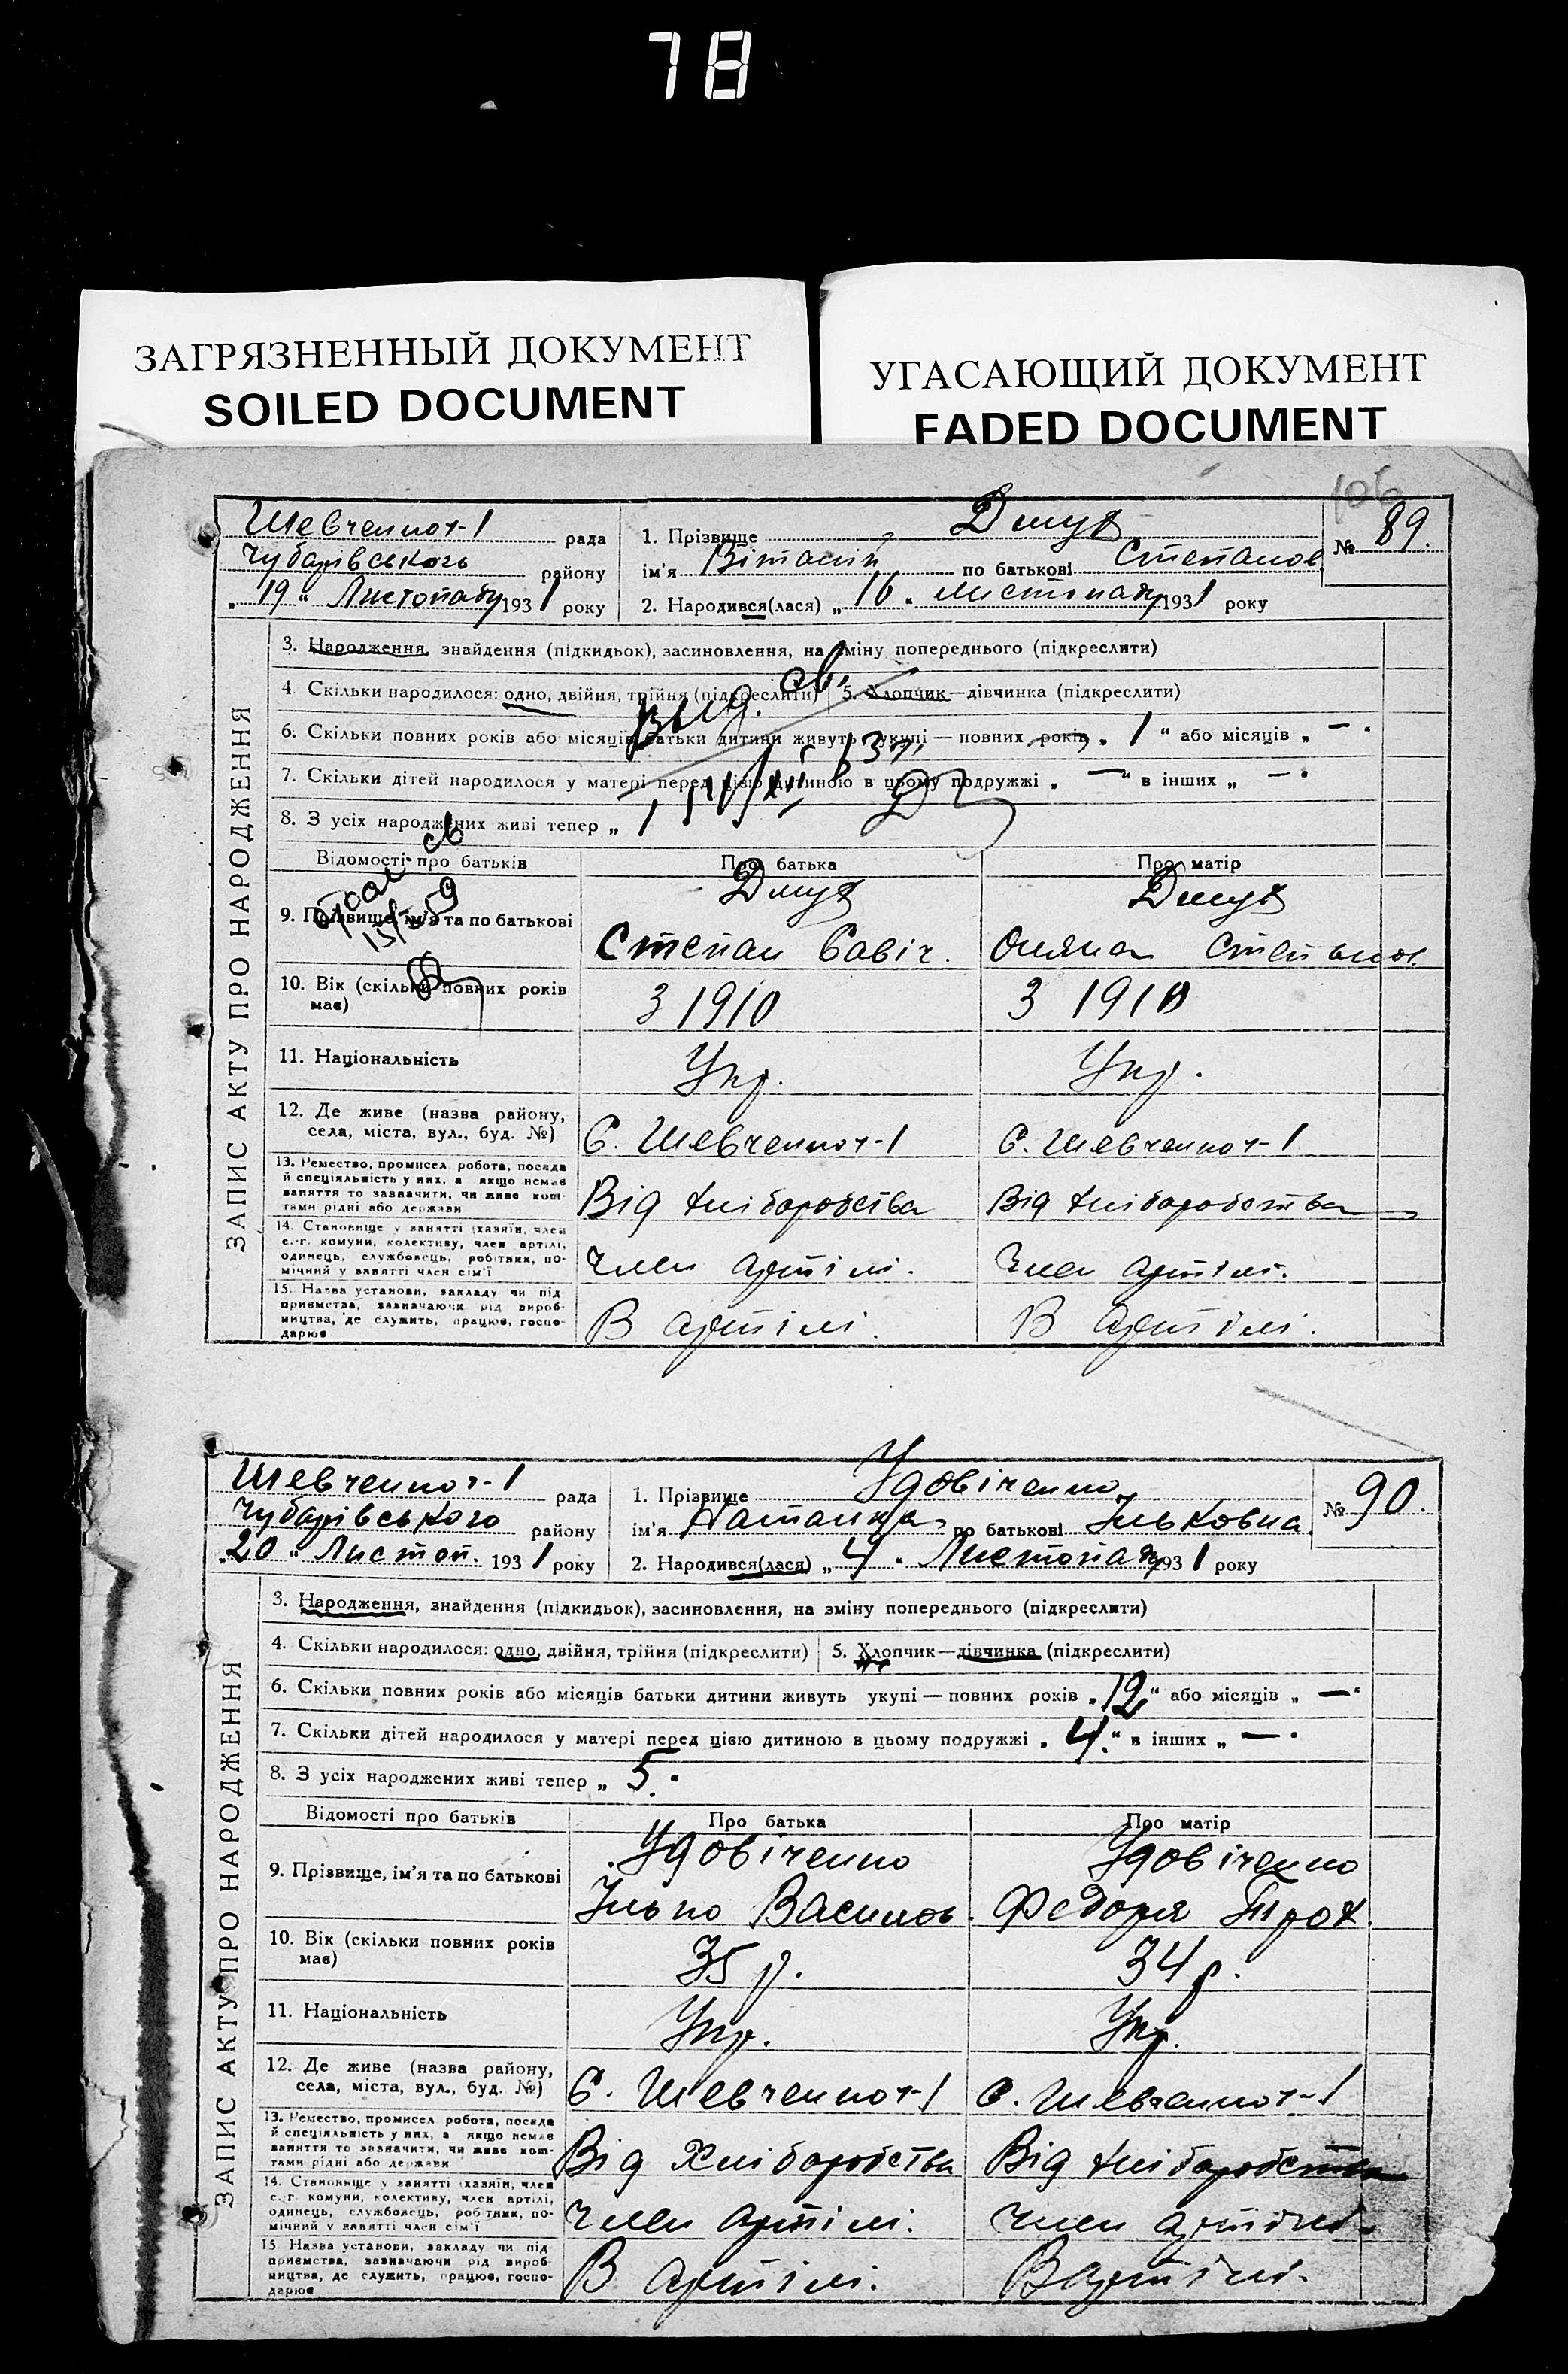 78
ЗАГРЯЗНЕННЫЙ ДОКУМЕНТ
SOILED DOCUMENT
УГАСАЮЩИЙ ДОКУМЕНТ
FADED DOCUMENT
106
ЗАПИС АКТУ ПРО НАРОДЖЕННЯ
Шевченков-1 рада
Чубарівського району
„19“ Листопаду 1931 року
1. Прізвище Джух
ім'я Віталий по батькові Степанов
№ 89.
2. Народився(лася) „16“ Листопаду 1931 року
3. Народження, знайдення (підкидьок), засиновлення, на зміну попереднього (підкреслити)
4. Скільки народилося: одно, двійня, трійня (підкреслити) 5. Хлопчик—дівчинка (підкреслити)
6. Скільки повних років або місяців батьки дитини живуть укупі — повних років „1“ або місяців „—“
7. Скільки дітей народилося у матері перед цією дитиною в цьому подружжі „—“ в інших „—“
8. З усіх народжених живі тепер „1
Відомості про батьків Про батька Про матір
9. Прізвище, ім'я та по батькові
Джух Джух
Степан Савіч. Оляна Степанов.
10. Вік (скільки повних років має) З 1910 З 1910
11. Національність Укр. Укр.
12. Де живе (назва району, села, міста, вул., буд. №) С. Шевченков-1 С. Шевченков-1
13. Ремество, промисел робота, посада й спеціяльність у них, а якщо немає заняття то зазначити, чи живе коштами рідні або держави Від хліборобства Від хліборобства
14. Становище у занятті (хазяїн, член с.-г. комуни, колективу, член артілі, одинець, службовець, робітник, помічний у занятті член сім'ї Член артілі. Член артілі.
15. Назва установи, закладу чи підприємства, зазначаючи рід виробництва, де служить, працює, господарює В артілі. В артілі.
ЗАПИС АКТУ ПРО НАРОДЖЕННЯ
Шевченков-1 рада
Чубарівського району
„20“ Листоп. 1931 року
1. Прізвище Удовіченко
ім'я Наталка по батькові Ільковна
№ 90.
2. Народився(лася) „4“ Листопаду 1931 року
3. Народження, знайдення (підкидьок), засиновлення, на зміну попереднього (підкреслити)
4. Скільки народилося: одно, двійня, трійня (підкреслити) 5. Хлопчик—дівчинка (підкреслити)
6. Скільки повних років або місяців батьки дитини живуть укупі — повних років „12“ або місяців „—“
7. Скільки дітей народилося у матері перед цією дитиною в цьому подружжі „4“ в інших „—“
8. З усіх народжених живі тепер „5.
Відомості про батьків Про батька Про матір
9. Прізвище, ім'я та по батькові
Удовіченко Удовіченко
Ілько Василов. Федоря Трох.
10. Вік (скільки повних років має) 35 р. 34 р.
11. Національність Укр. Укр.
12. Де живе (назва району, села, міста, вул., буд. №) С. Шевченков-1 С. Шевченков-1
13. Ремество, промисел робота, посада й спеціяльність у них, а якщо немає заняття то зазначити, чи живе коштами рідні або держави Від Хліборобства Від хліборобства
14. Становище у занятті (хазяїн, член с.-г. комуни, колективу, член артілі, одинець, службовець, робітник, помічний у занятті член сім'ї Член артілі. Член артілі.
15. Назва установи, закладу чи підприємства, зазначаючи рід виробництва, де служить, працює, господарює В артілі. В артілі.